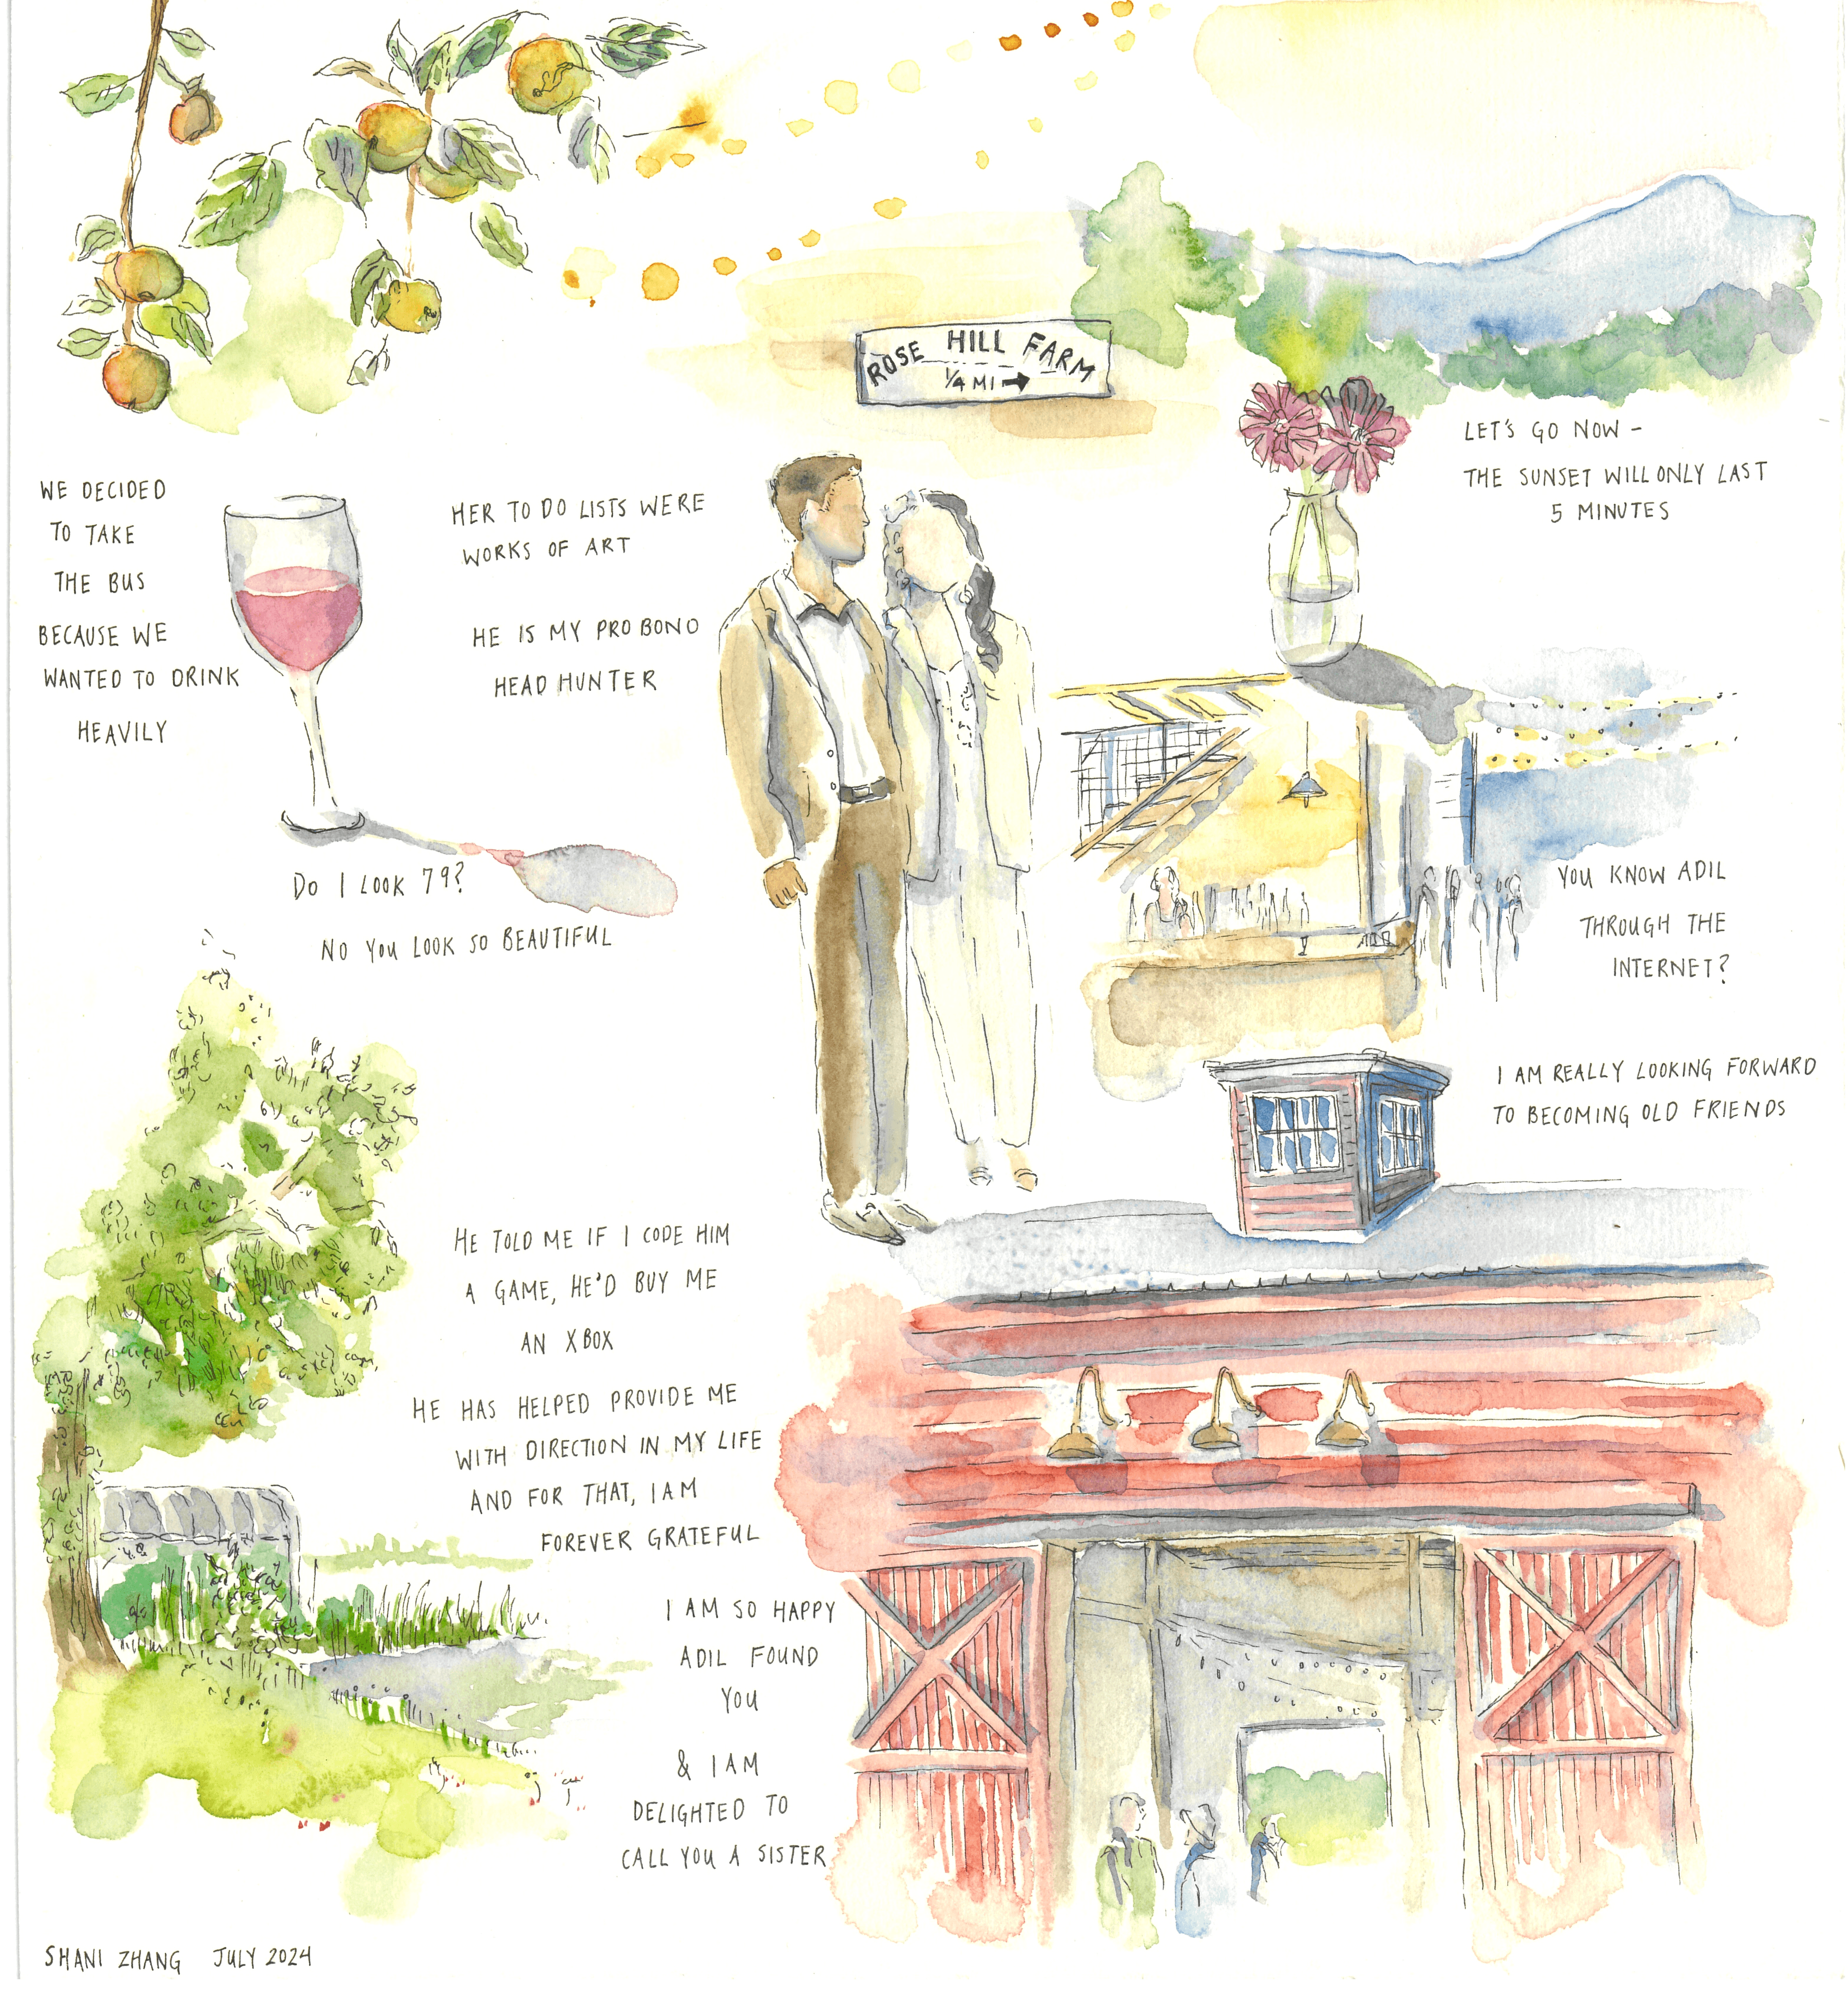 ROSE HILL FARM
1/4 MI →
LET'S GO NOW -
THE SUNSET WILL ONLY LAST
5 MINUTES
WE DECIDED
TO TAKE
THE BUS
BECAUSE WE
WANTED TO DRINK
HEAVILY
HER TO DO LISTS WERE
WORKS OF ART
HE IS MY PRO BONO
HEAD HUNTER
DO I LOOK 79?
NO YOU LOOK SO BEAUTIFUL
YOU KNOW ADIL
THROUGH THE
INTERNET?
I AM REALLY LOOKING FORWARD
TO BECOMING OLD FRIENDS
HE TOLD ME IF I CODE HIM
A GAME, HE'D BUY ME
AN XBOX
HE HAS HELPED PROVIDE ME
WITH DIRECTION IN MY LIFE
AND FOR THAT, I AM
FOREVER GRATEFUL
I AM SO HAPPY
ADIL FOUND
YOU
& I AM
DELIGHTED TO
CALL YOU A SISTER
SHANI ZHANG JULY 2024